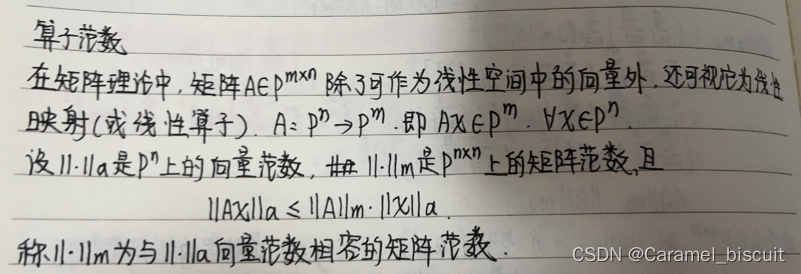 算子范数
在矩阵理论中,矩阵A∈P^{m×n} 除了可作为线性空间中的向量外,还可视作为线性
映射(或线性算子). A: P^n→P^m. 即 AX∈P^m. ∀X∈P^n.
设||·||a是P^n上的向量范数, ||·||m是P^{n×n}上的矩阵范数,且
||AX||a ≤ ||A||m·||X||a.
称||·||m为与||·||a向量范数相容的矩阵范数.
CSDN @Caramel_biscuit